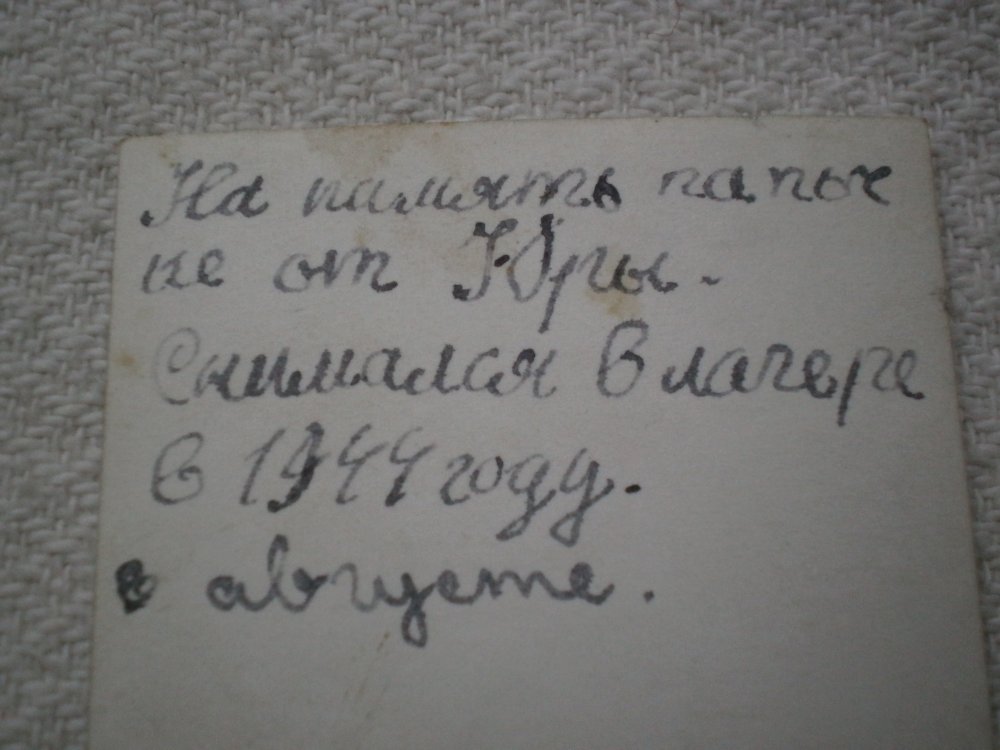 На память папоч
ке от Юры.
Снимался в лагере
в 1944 году.
в августе.